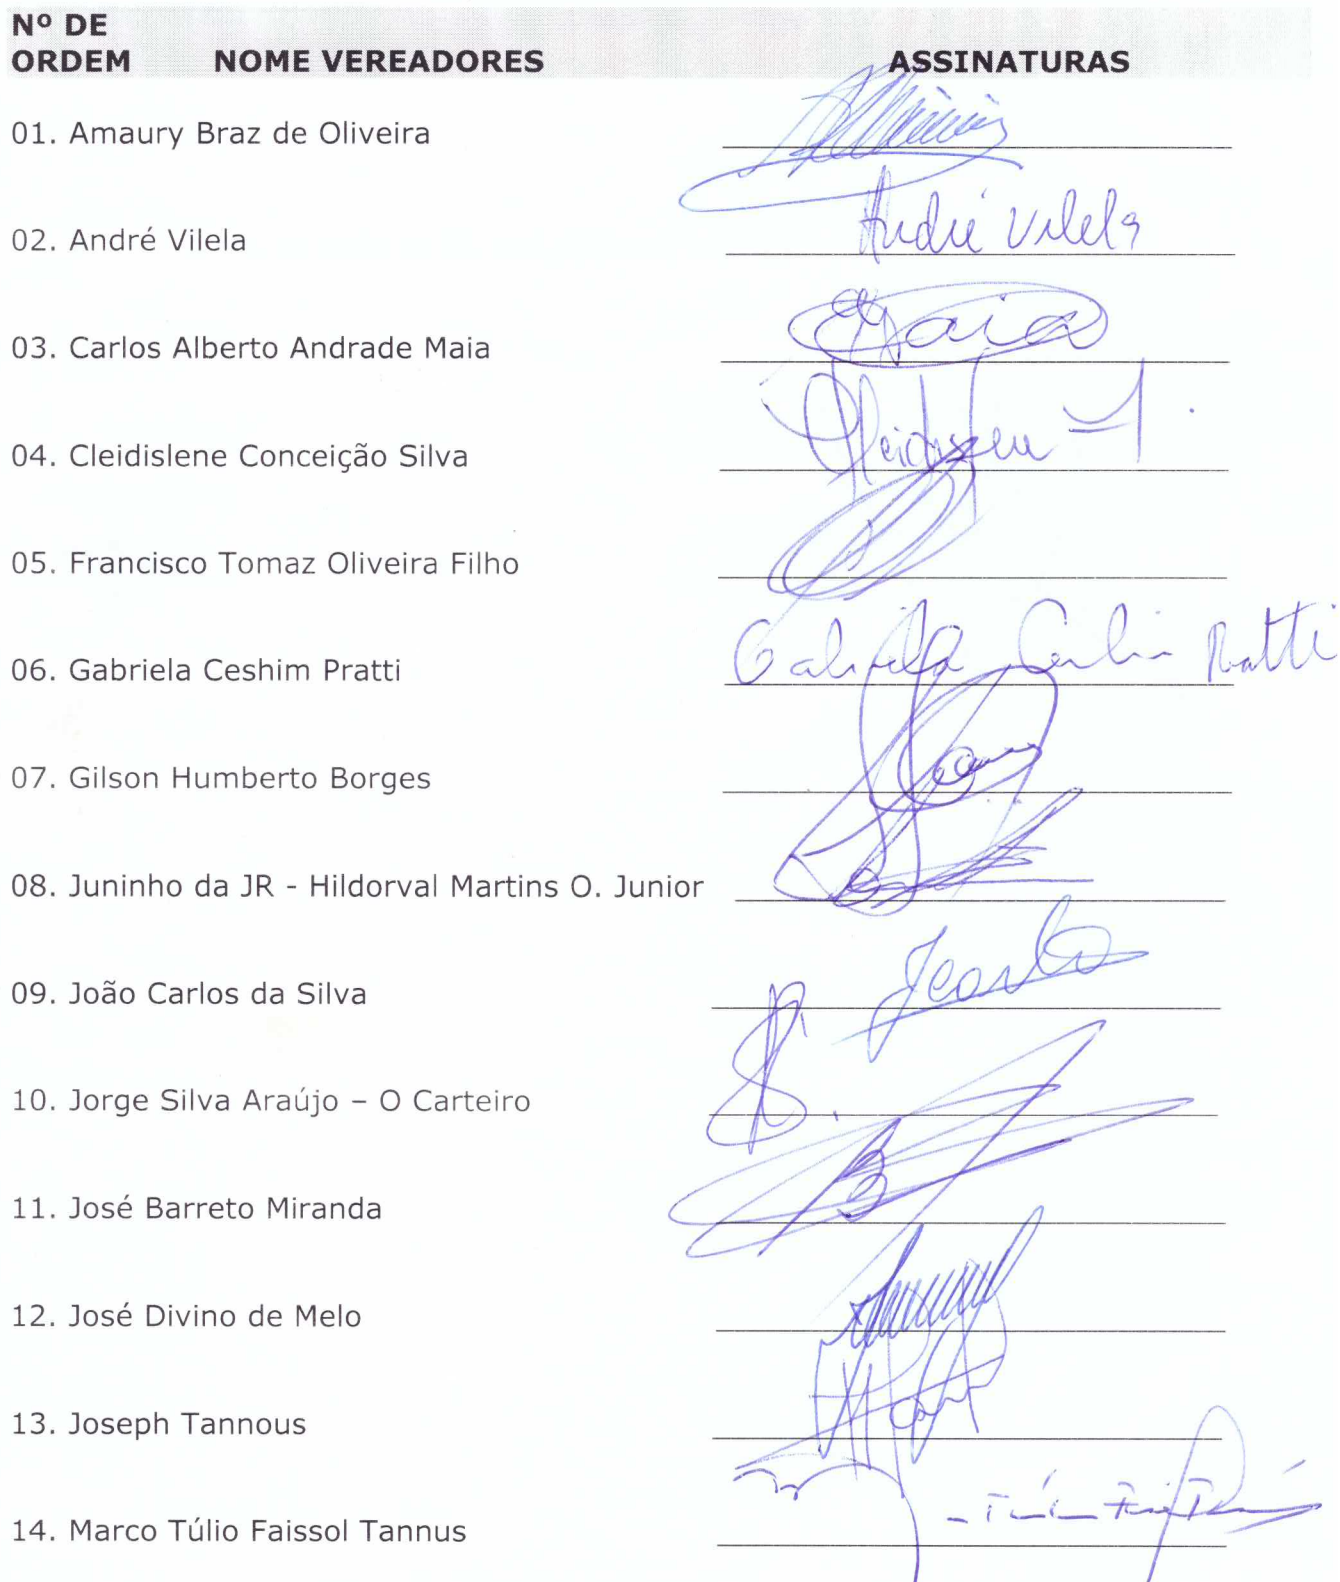 Nº DE
ORDEM NOME VEREADORES ASSINATURAS
01. Amaury Braz de Oliveira
02. André Vilela André Vilela
03. Carlos Alberto Andrade Maia Maia
04. Cleidislene Conceição Silva
05. Francisco Tomaz Oliveira Filho
06. Gabriela Ceshim Pratti Gabriela Ceshim Pratti
07. Gilson Humberto Borges
08. Juninho da JR - Hildorval Martins O. Junior
09. João Carlos da Silva
10. Jorge Silva Araújo – O Carteiro
11. José Barreto Miranda
12. José Divino de Melo
13. Joseph Tannous
14. Marco Túlio Faissol Tannus